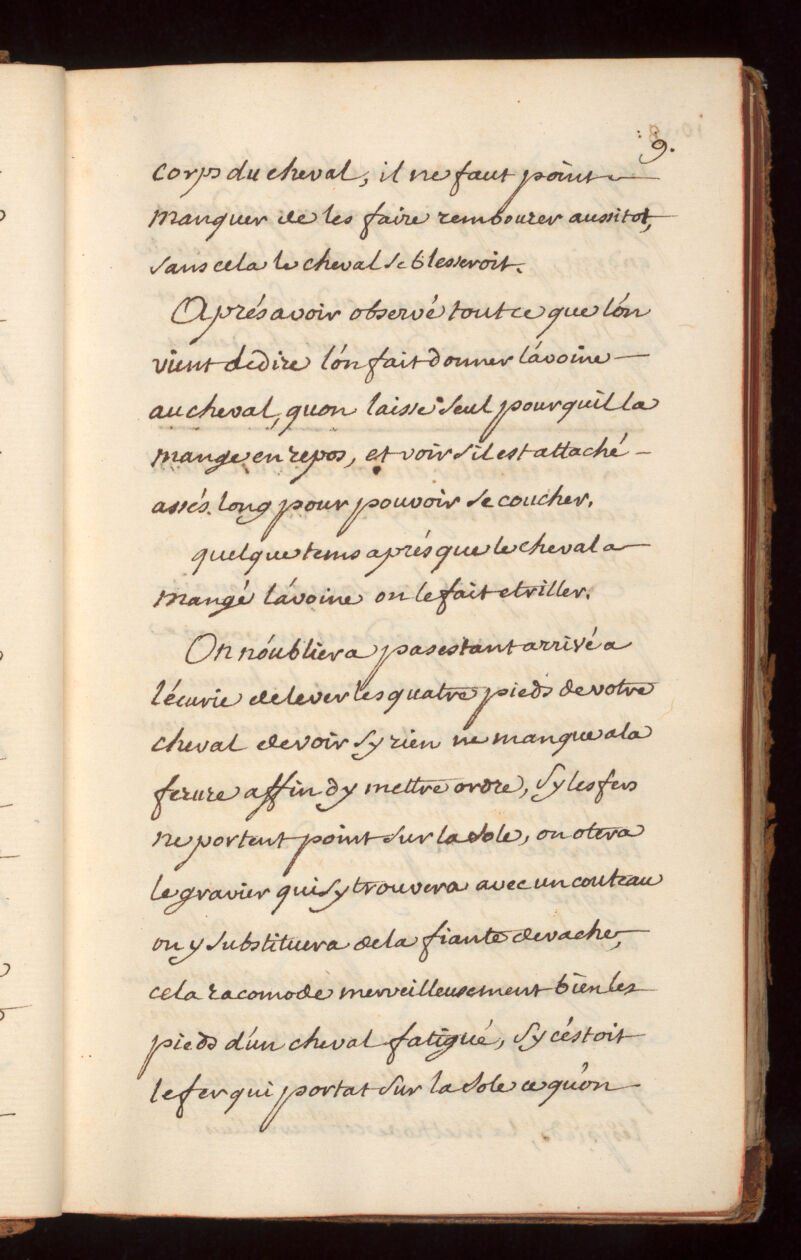 9.
corps du cheval, il ne faut point
manquer de les faire rembourer aussitot,
sans cela le cheval se blesseroit.
Aprés avoir observé tout ce que l'on
vient de dire l'on fait donner l'avoine
au cheval, quon laisse seul pour quil la
mange en repos, et voir s'il est attaché
assés long pour pouvoir se coucher.
quelque tems aprés que le cheval a
mangé l'avoine on le fait etriller.
On n'oubliera pas estant arrivé a
l'écurie de lever les quatre pieds de votre
cheval de voir sy rien ne manque a la
ferure affin dy mettre ordre, sy les fers
ne portent point sur la sole, on otera
le gravier qui sy trouvera avec un couteau
on y substituera de la fiante de vache,
cela racomode merveilleusement bien les
pieds d'un cheval fatigué, sy c'éstoit
le fer qui portat sur la sole ce qu'on